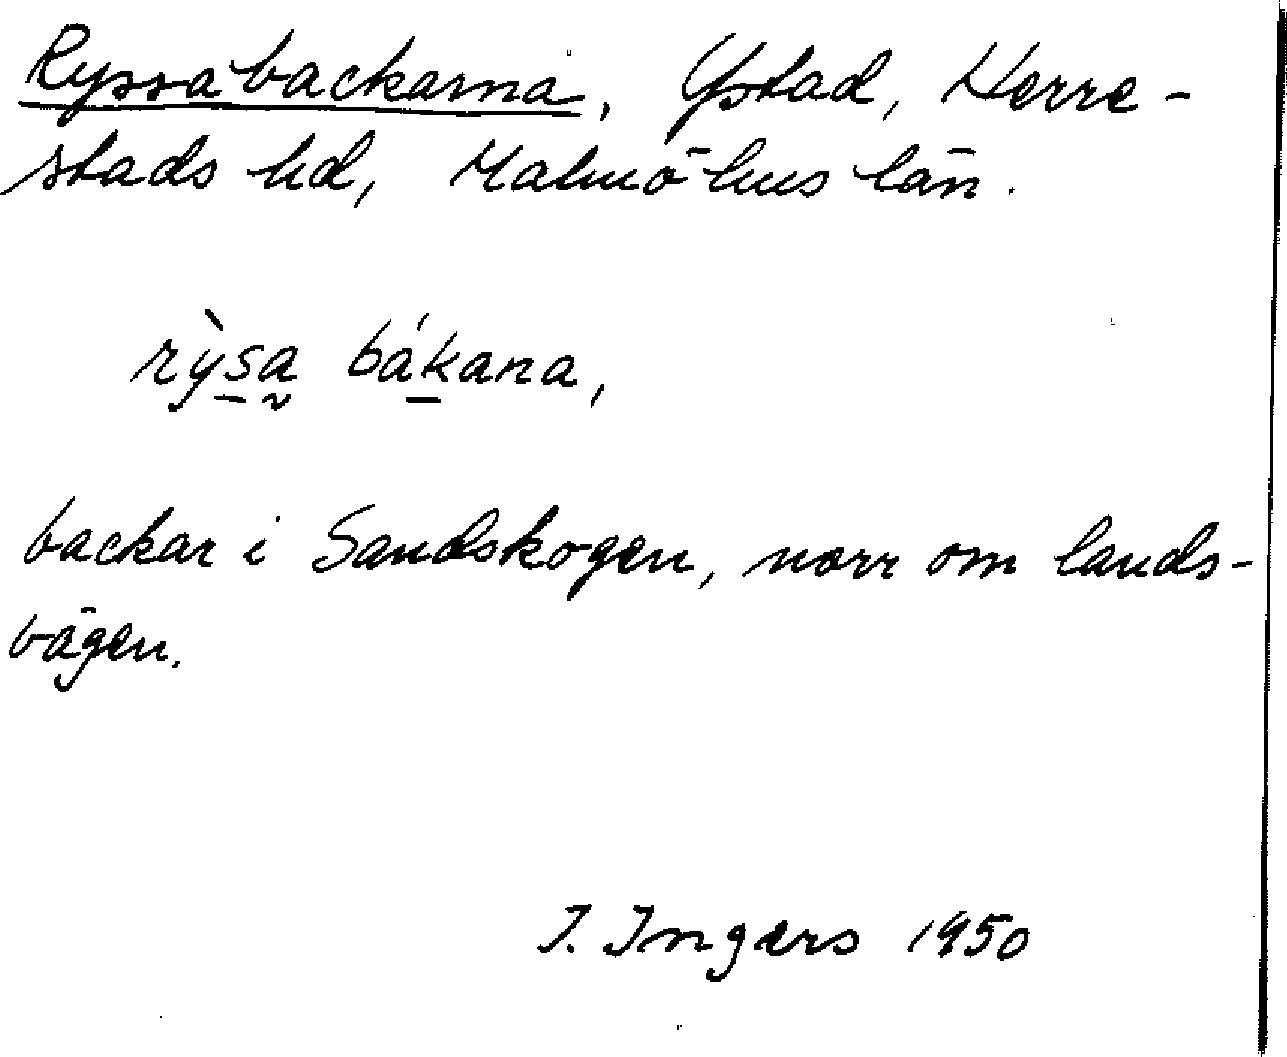 Ryssabackarna, Ystad, Herre-
stads hd, Malmöhus län.
rỳsa bákana,
backar i Sandskogen, norr om lands-
vägen.
I. Ingers 1950